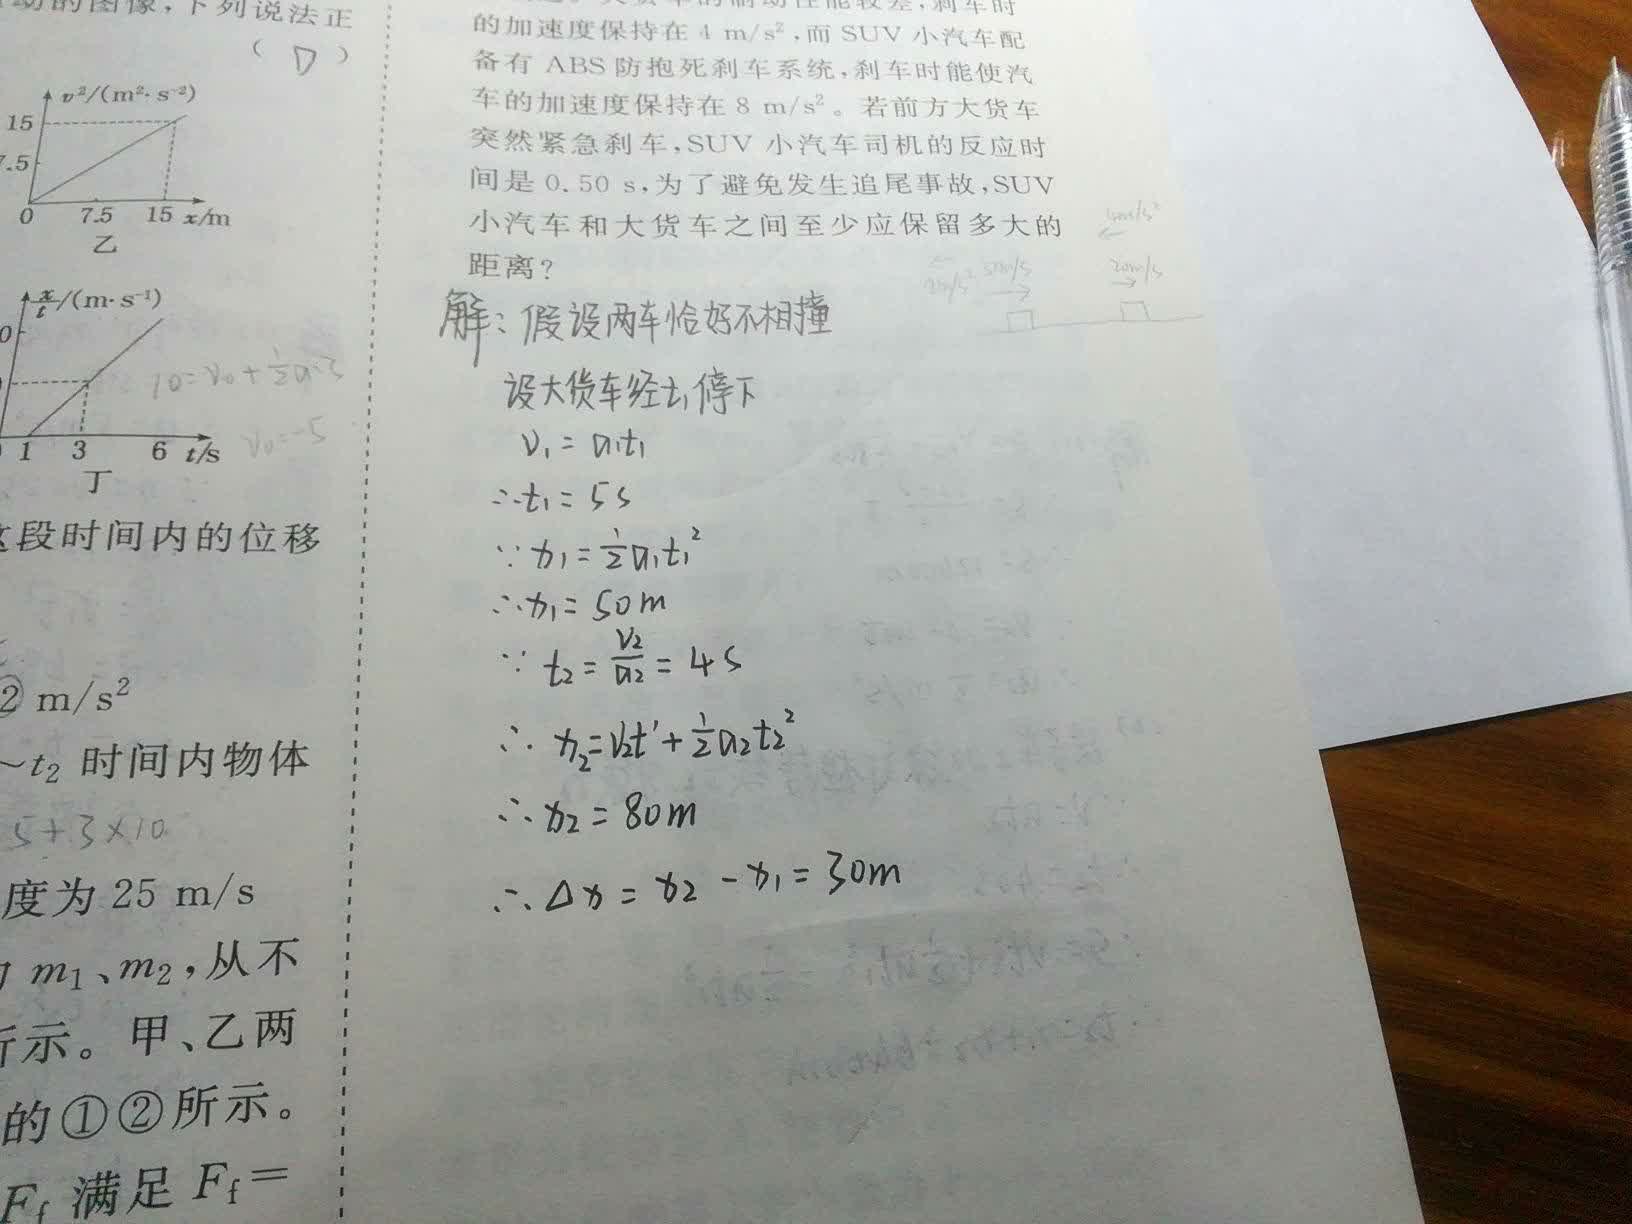 动的图像,下列说法正
( D )
v²/(m²·s⁻²)
15
7.5
0 7.5 15 x/m
乙
x/t/(m·s⁻¹)
0
1 3 6 t/s
丁
10=v₀+½a·3
v₀=-5
这段时间内的位移
② m/s²
~t₂ 时间内物体
5+3×10
度为 25 m/s
m₁、m₂,从不
所示。甲、乙两
的①②所示。
F_f 满足 F_f=
的加速度保持在 4 m/s²,而 SUV 小汽车配
备有 ABS 防抱死刹车系统,刹车时能使汽
车的加速度保持在 8 m/s²。若前方大货车
突然紧急刹车,SUV 小汽车司机的反应时
间是 0.50 s,为了避免发生追尾事故,SUV
小汽车和大货车之间至少应保留多大的
距离?
20m/s
解:假设两车恰好不相撞
设大货车经t₁停下
v₁=a₁t₁
∴t₁=5s
∵x₁=½a₁t₁²
∴x₁=50m
∵t₂=v₂/a₂=4s
∴x₂=v₂t'+½a₂t₂²
∴x₂=80m
∴Δx=x₂-x₁=30m